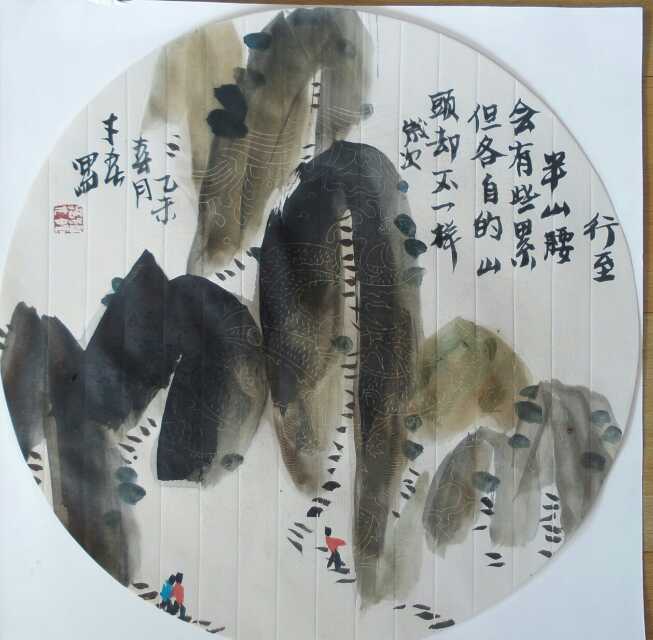 行至
半山腰
会有些累
但各自的山
头却不一样
岁次
乙未
春月